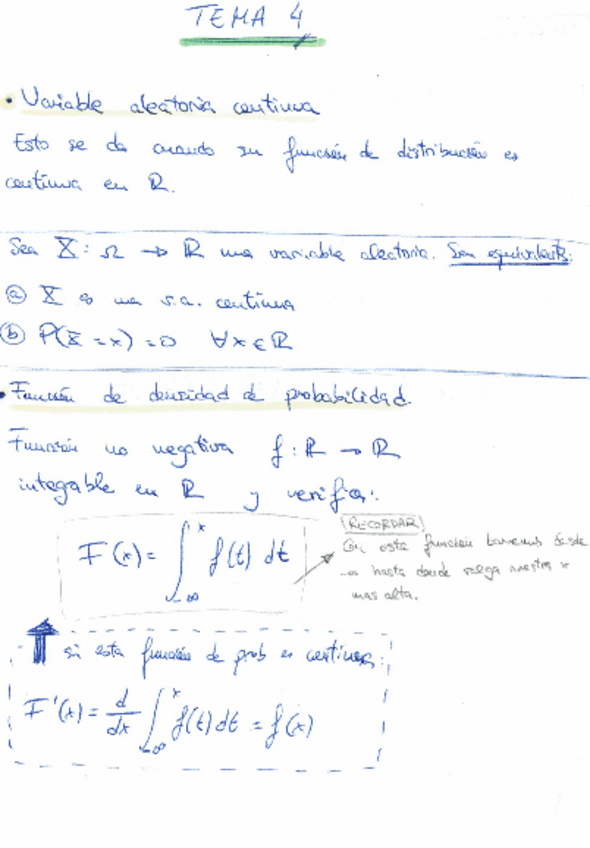 TEMA 4
• Variable aleatoria continua
Esto se da cuando su función de distribución es
continua en ℝ.
Sea X : Ω → ℝ una variable aleatoria. Son equivalentes:
ⓐ X es una v.a. continua
ⓑ P(X = x) = 0 ∀x ∈ ℝ
• Función de densidad de probabilidad.
Función no negativa f : ℝ → ℝ
integable en ℝ y verifica:
F(x) = ∫_{-∞}^{x} f(t) dt
RECORDAR
Con esta función barremos desde
-∞ hasta donde valga nuestra x
mas alta.
si esta función de prob es continua:
F'(x) = d/dx ∫_{-∞}^{x} f(t) dt = f(x)